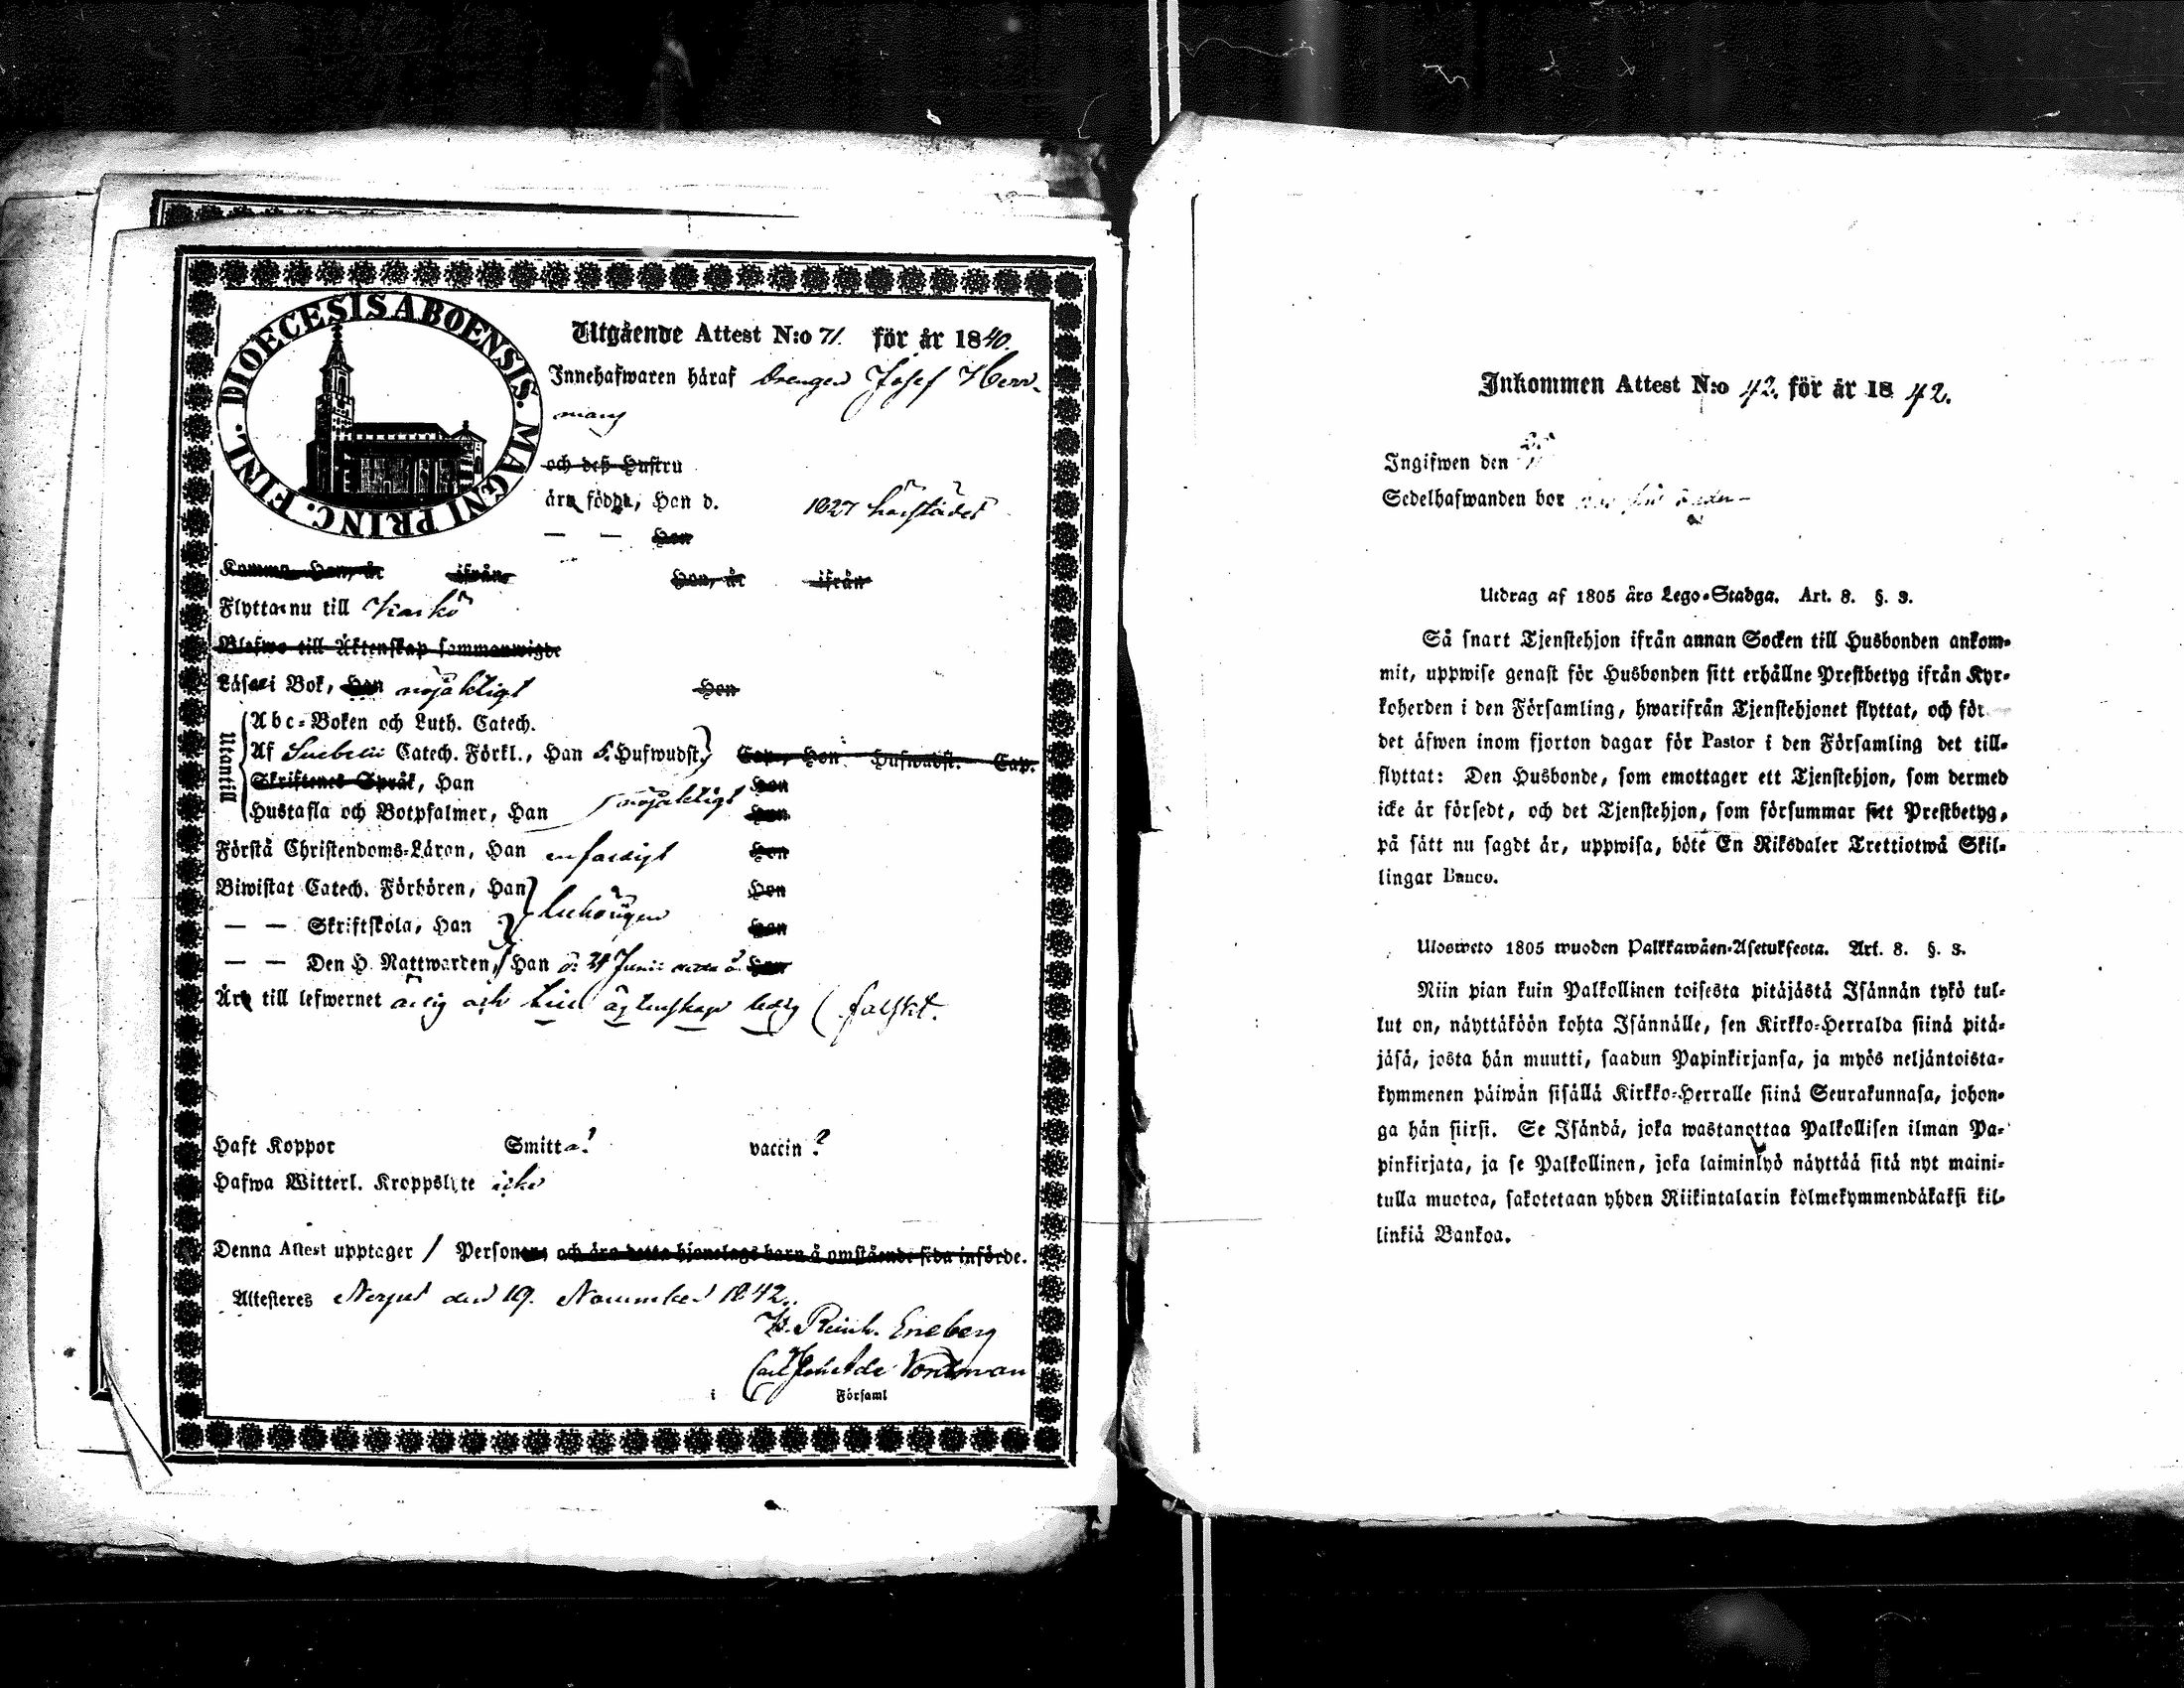 DIOECESIS ABOENSIS. MAGNI PRINC. FINL.
Utgående Attest N:o 71. för år 1840.
Innehafwaren häraf drengen Josef Herr-
mang
och deß Hustru
äro födde, Han d. 1827 härstädes
— — Hon
Komma Han, år ifrån Hon, år ifrån
Flytta nu till Karkö
Blefwo till Äktenskap sammanwigde
Läsa i Bok, Han nöjaktigt Hon
Utantill
Abc-Boken och Luth. Catech.
Af Svebelii Catech. Förkl., Han 5. Hufwudst. Cap., Hon Hufwudst. Cap.
Skriftenes Språk, Han Hon
Hustafla och Botpsalmer, Han nöjaktigt Hon
Förstå Christendoms-Läran, Han enfaldigt Hon
Biwistat Catech. Förhören, Han Hon
— — Skriftskola, Han behörigen Hon
— — Den H. Nattwarden, Han d. 24 Junii detta å. Hon
Äro till lefwernet ärlig och äktenskap ledig (falskt.
Haft Koppor Smitta? vaccin?
Hafwa Witterl. Kroppslyte icke
Denna Attest upptager 1 Personer, och äro detta hjonelags barn å omstående sida införde.
Attesteras Merjet den 19. November 1842.
Reinh. Eneberg
Carl Nordman
i Församl
Inkommen Attest N:o 42. för år 1842.
Ingifwen den
Sedelhafwanden bor
Utdrag af 1805 års Lego-Stadga. Art. 8. §. 3.
Så snart Tjenstehjon ifrån annan Socken till Husbonden ankom-
mit, uppwise genast för Husbonden sitt erhållne Prestbetyg ifrån Kyr-
koherden i den Församling, hwarifrån Tjenstehjonet flyttat, och för
det äfwen inom fjorton dagar för Pastor i den Församling det till-
flyttat: Den Husbonde, som emottager ett Tjenstehjon, som dermed
icke är försedt, och det Tjenstehjon, som försummar sitt Prestbetyg,
på sätt nu sagdt är, uppwisa, böte En Riksdaler Trettiotwå Skil-
lingar Banco.
Ulosweto 1805 wuoden Palkkawäen-Asetuksesta. Art. 8. §. 3.
Niin pian kuin Palkollinen toisesta pitäjästä Isännän tykö tul-
lut on, näyttäköön kohta Isännälle, sen Kirkko-Herralda siinä pitä-
jäsä, josta hän muutti, saadun Papinkirjansa, ja myös neljäntoista-
kymmenen päiwän sisällä Kirkko-Herralle siinä Seurakunnasa, johon-
ga hän siirsi. Se Isändä, joka wastanottaa Palkollisen ilman Pa-
pinkirjata, ja se Palkollinen, joka laiminlyö näyttää sitä nyt maini-
tulla muotoa, sakotetaan yhden Riikintalarin kolmekymmendäkaksi kil-
linkiä Bankoa.